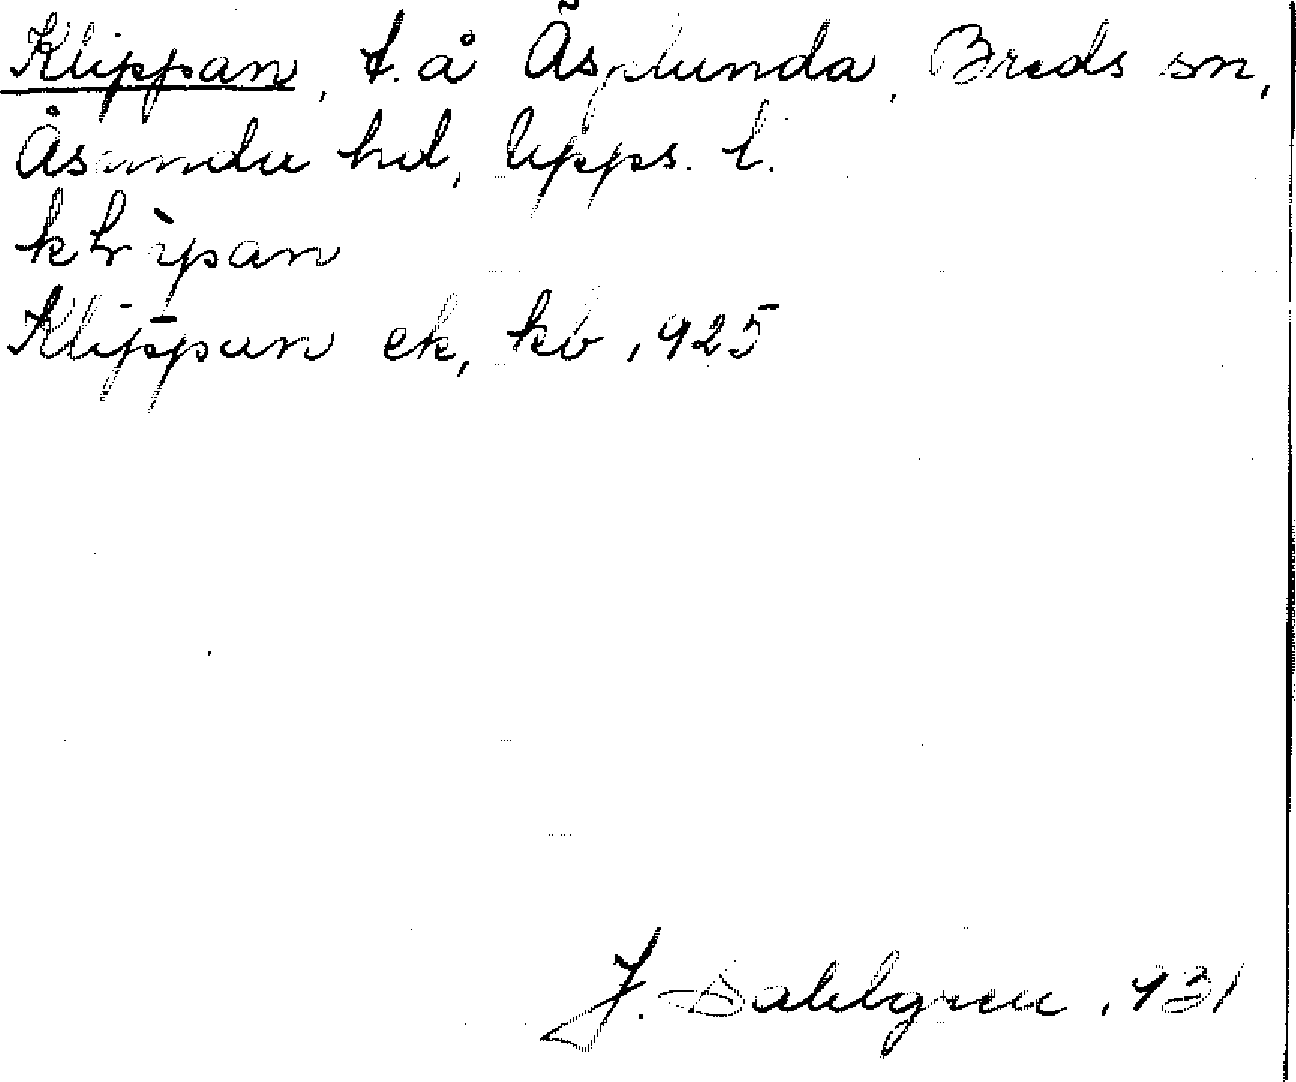 Klippan, t. å Äsplunda, Breds sn,
Åsunda hd, Upps. l.
Klippan ek, kb, 925
J. Dahlgren, 931